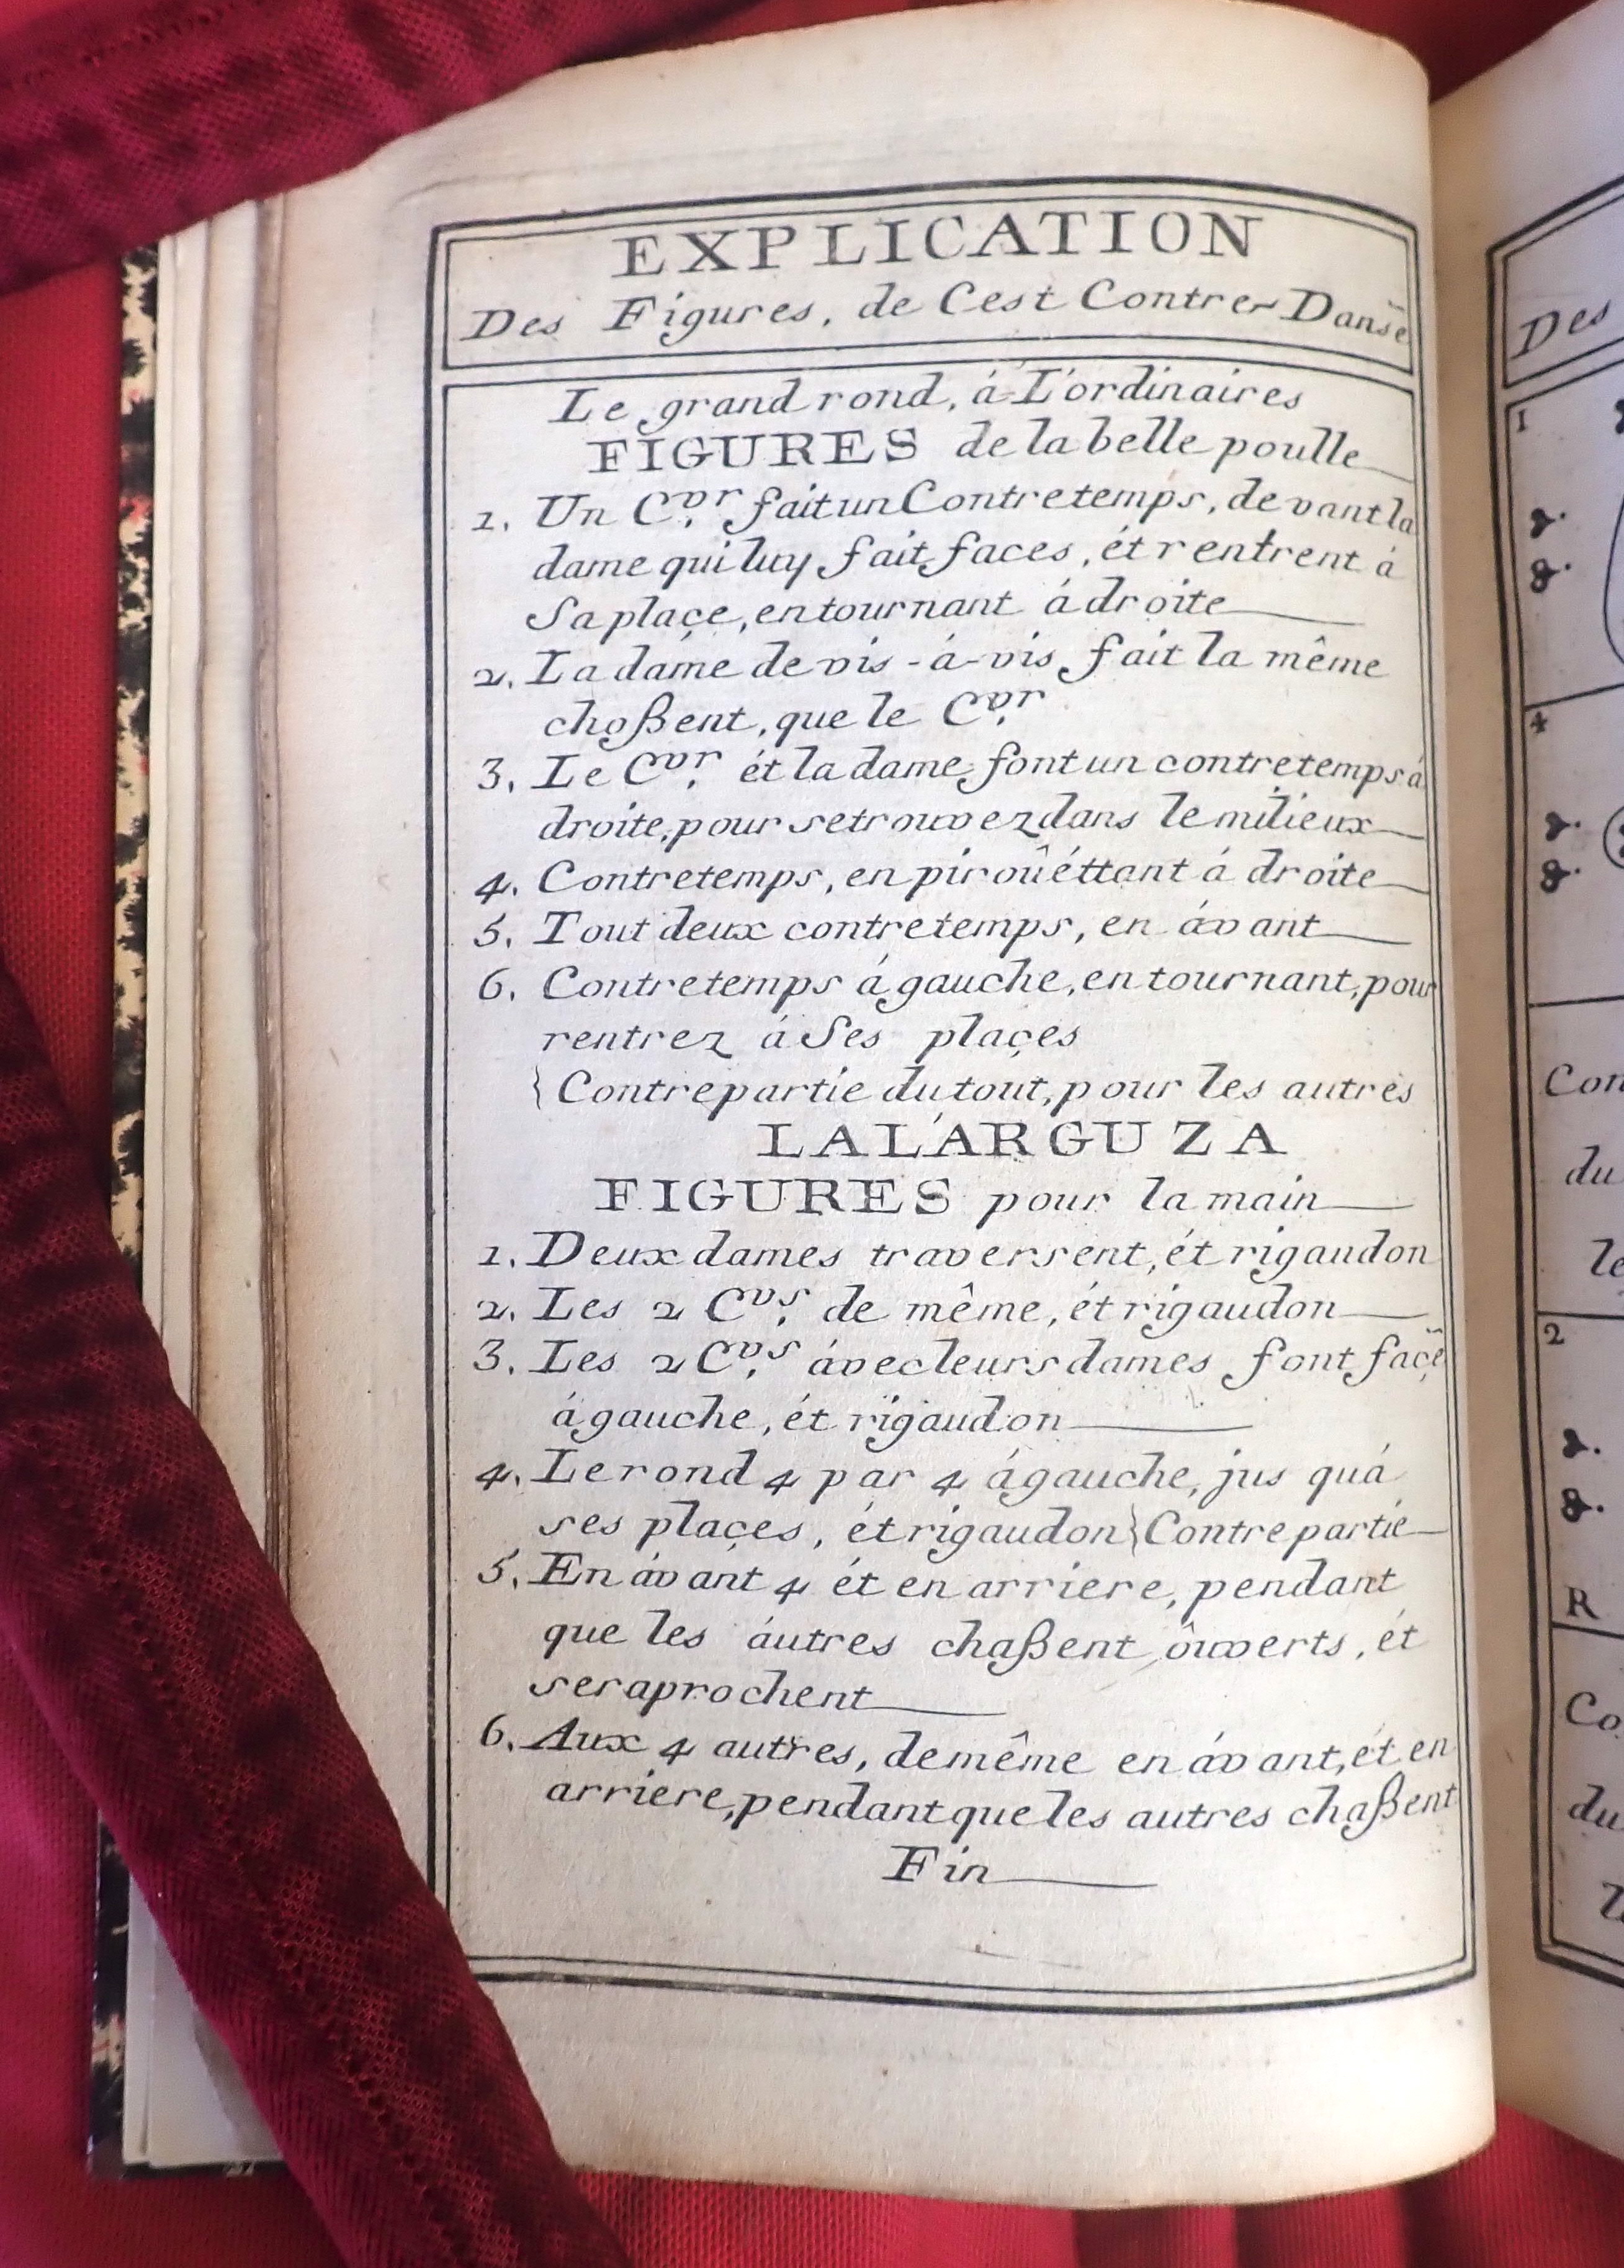 EXPLICATION
Des Figures, de Cest Contre-Danse
Le grand rond, á L'ordinaires
FIGURES de la belle poulle
1. Un C.vr fait un Contretemps, devant la
dame qui luy fait faces, ét rentrent á
Sa plaçe, en tournant á droite
2. La dame de vis-á-vis fait la même
choßent, que le C.vr
3. Le C.vr ét la dame font un contretemps á
droite, pour se trouvez dans le milieux
4. Contretemps, en piroûéttant á droite
5. Tout deux contretemps, en ávant
6. Contretemps á gauche, en tournant, pour
rentrez á Ses plaçes
{Contrepartie du tout, pour les autres
LAL'ARGUZA
FIGURES pour la main
1. Deux dames traversent, ét rigaudon
2. Les 2 C.vs de même, ét rigaudon
3. Les 2 C.vs ávec leurs dames font façe
á gauche, ét rigaudon
4. Le rond 4 par 4 á gauche, jus quá
ses plaçes, ét rigaudon}Contrepartie
5. En ávant 4 ét en arriere, pendant
que les áutres chaßent ôuverts, ét
se raprochent
6. Aux 4 autres, de même en ávant, ét en
arriere, pendant que les autres chaßent
Fin
Des
1
4
Con
du
le
2
R
Co
du